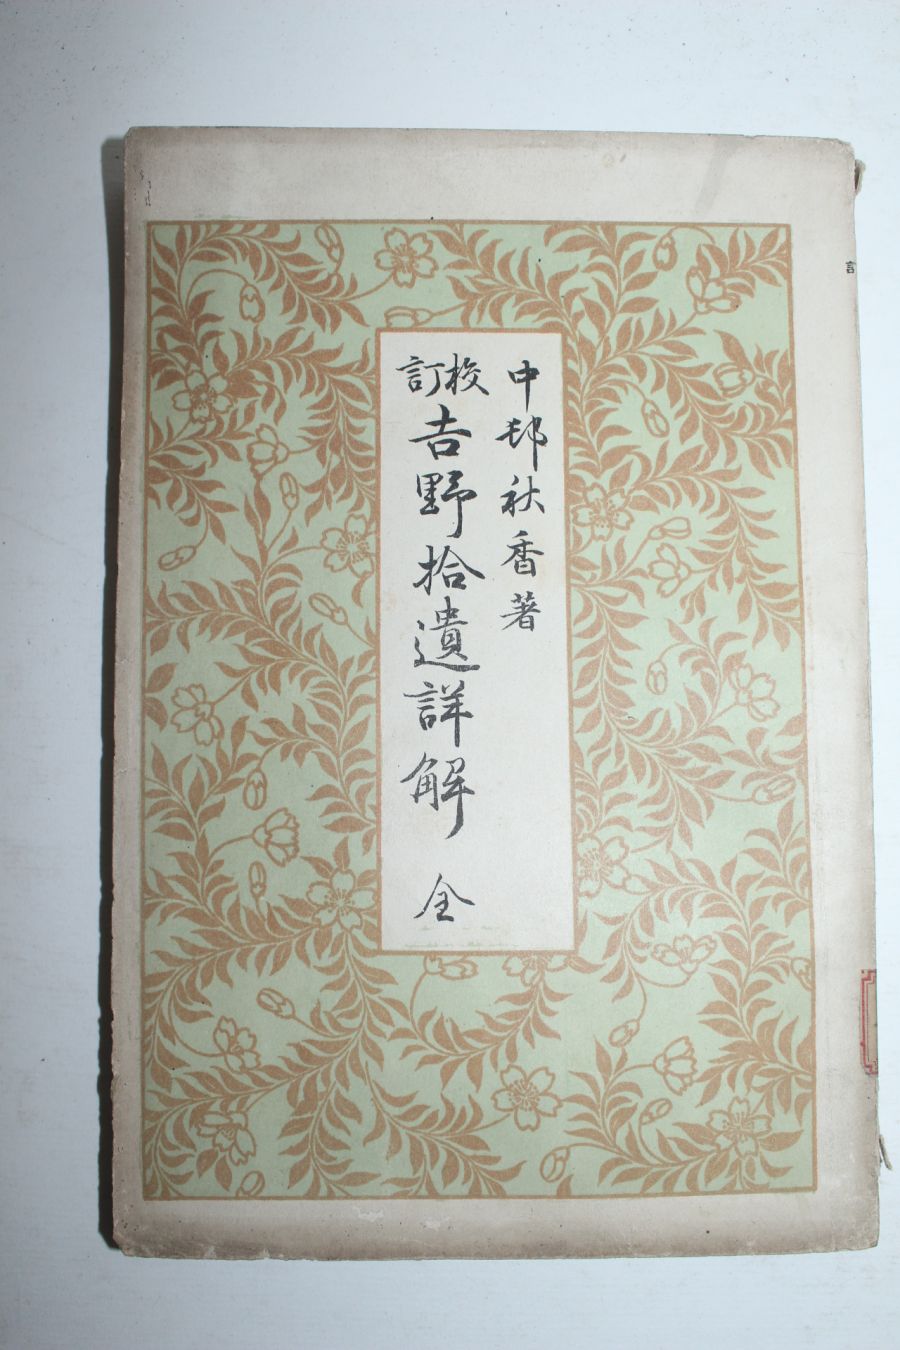 中邨秋香著
校訂吉野拾遺詳解 全
言